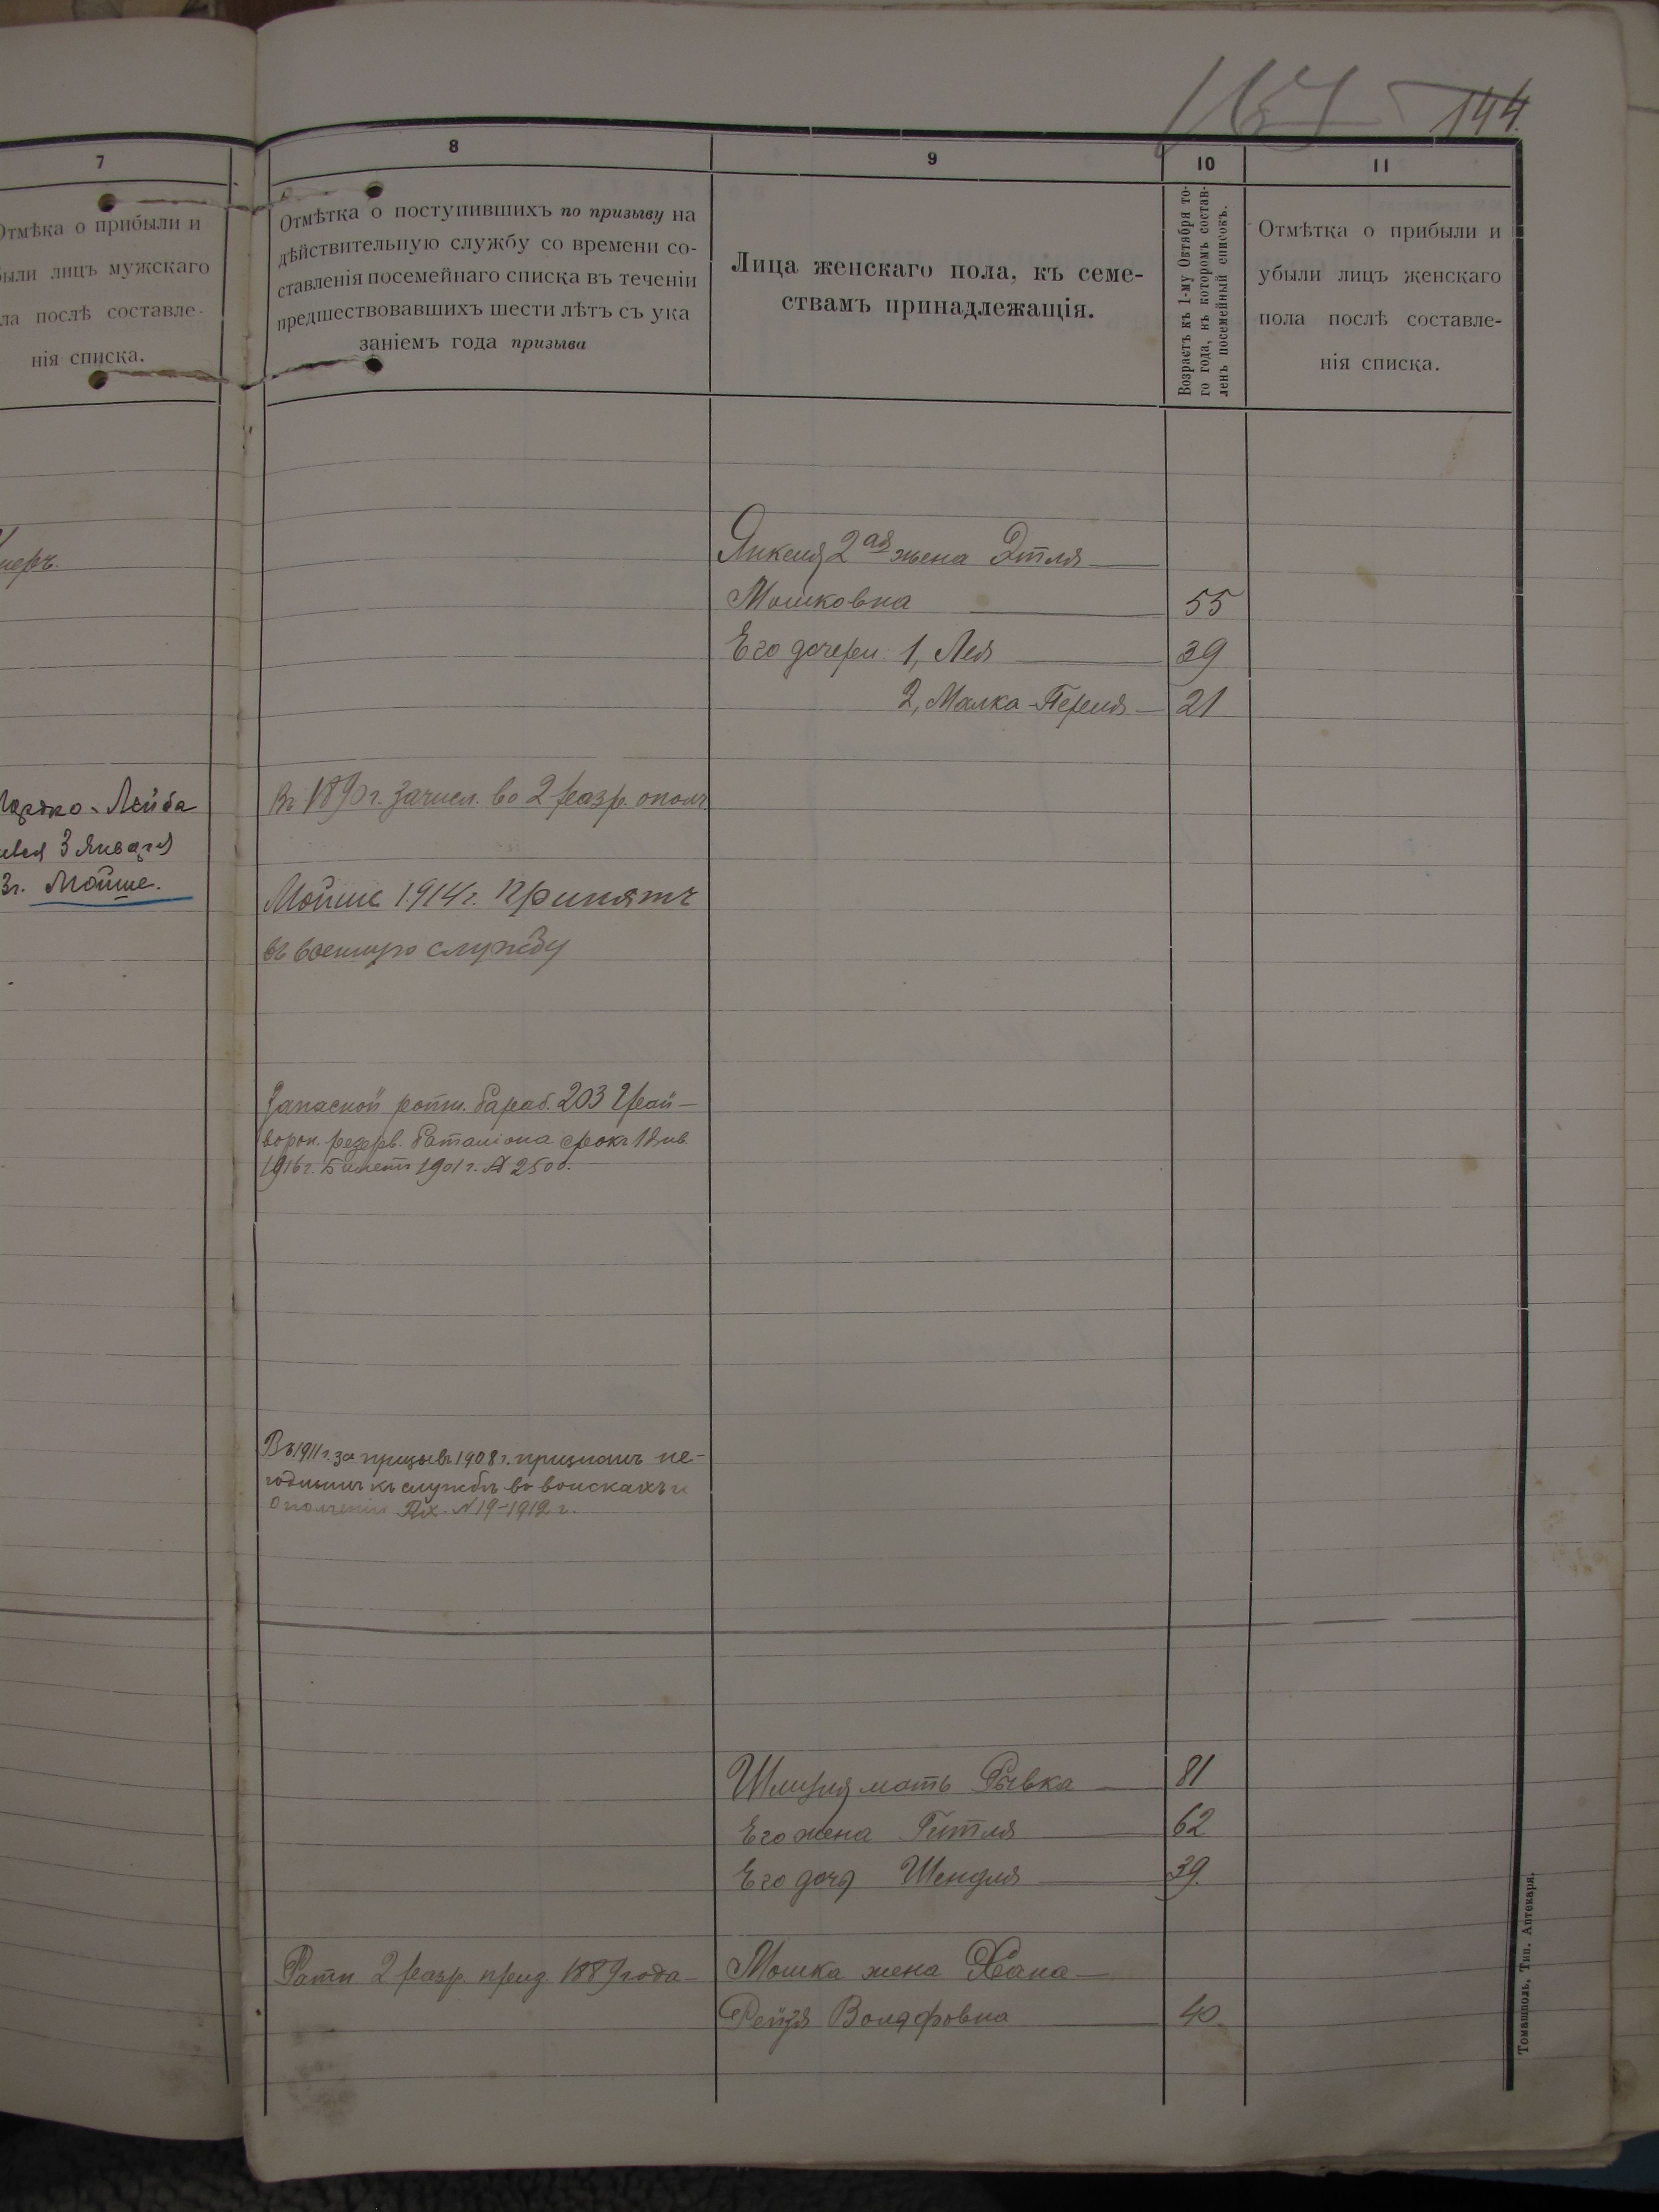 144.
7
Отмѣка о прибыли и
были лицъ мужскаго
ла послѣ составле-
нія списка.
8
Отмѣтка о поступившихъ по призыву на
дѣйствительную службу со времени со-
ставленія посемейнаго списка въ теченіи
предшествовавшихъ шести лѣтъ съ ука
заніемъ года призыва
9
Лица женскаго пола, къ семе-
ствамъ принадлежащія.
10
Возрастъ къ 1-му Октября то-
го года, къ которомъ состав-
ленъ посемейный списокъ.
11
Отмѣтка о прибыли и
убыли лицъ женскаго
пола послѣ составле-
нія списка.
Янкеля 2ая жена Этля
Мошковна 55
Его дочери 1, Лея 39
2, Малка-Перля 21
Лейба
3 Января
3г. Мойше.
Въ 1890 г. зачисл. во 2 разр. ополч
Мойше 1914 г. Принятъ
въ военную службу
Запасной ротн. бараб. 203 Грай-
ворон. резерв. баталіона срокъ 1 Янв.
1916 г. Билетъ 1901 г. №
Въ 1911 г. за призывъ 1908 г. признанъ не-
годнымъ къ службѣ въ войскахъ и
Ополченіи №19-1912 г.
Шлиома мать Рывка 81
Его жена Гитля 62
Его дочь Шендля 39.
Ратн 2 разр. приз. 1889 года
Мошка жена Хана
Рейзя Вольфовна 40.
Томашполь, Тип. Аптекаря.